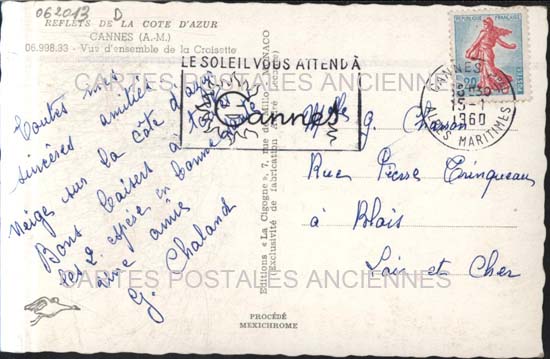 062013 D
REFLETS DE LA COTE D'AZUR
CANNES (A.-M.)
06.998.33 - Vue d'ensemble de la Croisette
Toutes mes
sincères amitiés
Neige sur la Côte d'azur
Bons baisers à toutes
les 2. espère en bonne santé
une amie
G. Chaland
PROCÉDÉ
MEXICHROME
Editions « La Cigogne », 7, rue de Millo, MONACO
(Exclusivité de fabrication André Leconte)
LE SOLEIL VOUS ATTEND À
Cannes
REPUBLIQUE FRANÇAISE
0,20
POSTES
CANNES
15-1
1960
ALPES MARITIMES
Mlle G.
Rue Pierre
à Blois
Loir et Cher
CARTES POSTALES ANCIENNES
CARTES POSTALES ANCIENNES